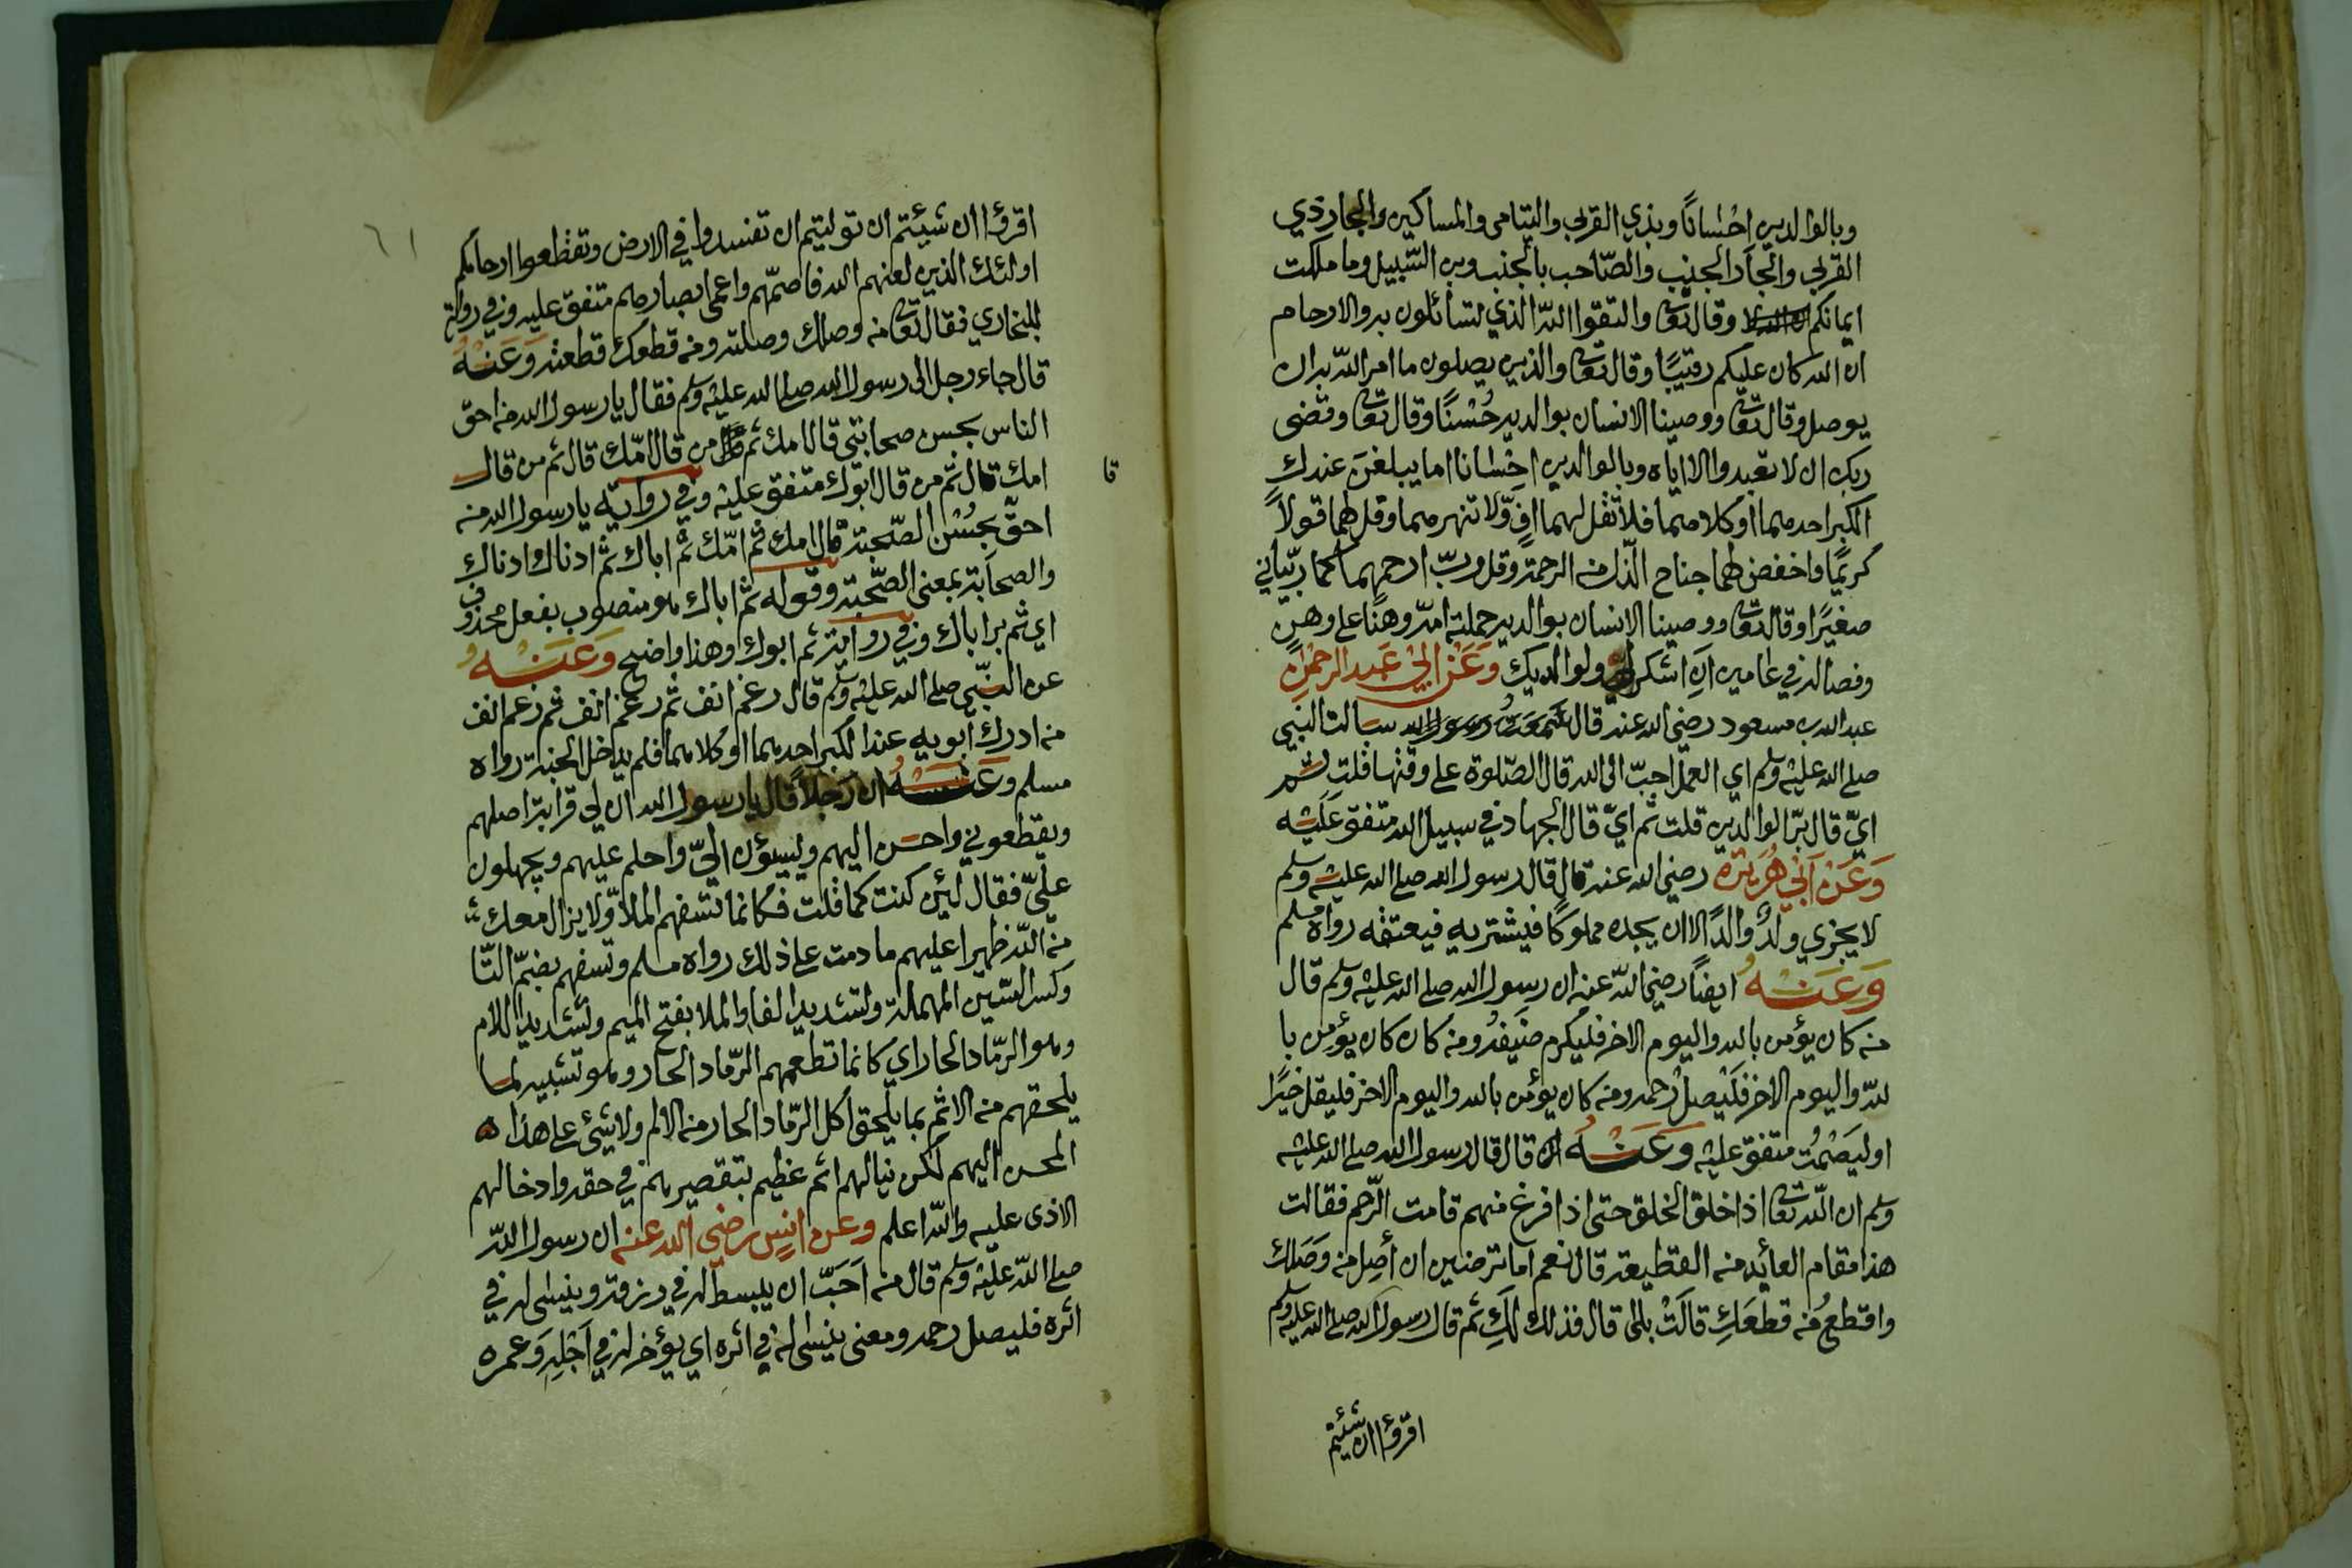 وبالوالدين احْسَانًا وبذي القربى واليتامى والمساكين والجار ذي
القربى والجار الجنب والصّاحب بالجنب وبن السّبيل وما ملكت
ايمانكم وقال تعا واتقوا اللّه الذي تسائلون به والارحام
ان الله كان عليكم رقيبًا وقال تعا والذين يصلون ما امر اللّه به ان
يوصل وقال تعا ووصينا الانسان بوالديه حُسْنًا وقال تعا وقضى
ربك ان لا تعبدوا الا اياه وبالوالدين احْسَانا اما يبلغنّ عندك
الكبر احدهما اوكلاهما فلا تقل لهما افٍ وّلا تنهرهما وقل لهما قولاً
كريمًا واخفض لهما جناح الّذل من الرحمة وقل ربّ ارحمهما كما ربّياني
صغيرًا وقال تعا ووصينا الانسان بوالديه حملته امّه وهنًا على وهنٍ
وفصاله في عامين اَنِ اشكر لي ولوالديك وَعَنْ ابي عَبد الرحمٰنِ
عبد الله بن مسعود رضي الله عنه قال سالت النبي
صلى الله عليه وسلم اي العمل احبّ الى الله قال الصّلوة على وقتها قلت ثمّ
ايّ قال برّ الوالدين قلت ثم ايّ قال الجهاد في سبيل الله متفق عَلَيْه
وَعَنْ اَبي هُرَيْرَة رضي الله عنه قال قال رسول الله صلى الله عليه وسلم
لا يجزي ولدٌ والدًا الا ان يجده مملوكًا فيشتريه فيعتقه رواه مسلم
وَعَنْهُ ايضًا رضي اللّه عنه ان رسول الله صلى الله عليه وسلم قال
من كان يؤمن بالله واليوم الاخر فليكرم ضَيفهُ ومن كان كان يؤمن با
للّه واليوم الاخر فَلْيَصِلْ رَحمه ومن كان يؤمن بالله واليوم الاخر فليقل خيرًا
اوليَصْمُت متفق عليه وَعَنْهُ قال قال رسول الله صلى الله عليه
وسلم ان اللّه تعا اذا خلق الخلق حتى اذا فرغ منهم قامت الرّحم فقالت
هذا مقام العائذ من القطيعة قال نعم اما ترضين ان أصِل من وَصَلك
واقطعُ من قطعَكِ قالَتْ بلى قال فذلك لَكِ ثم قال رسول الله صلى الله عليه وسلم
اقرؤا ان شئتم
اقرؤا ان شيئتم ان توليتم ان تفسدوا في الارض وتقطعوا ارحامكم
اولئك الذين لعنهم الله فاصمّهم واعمى ابصارهم متفق عليه وفي رواية
للبخاري فقال تعا من وصلك وصلته ومن قطعك قطعته وَعَنْهُ
قال جاء رجل الى رسول الله صلى الله عليه وسلم فقال يا رسول الله من احقّ
الناس بحسن صحابتي قال امك ثم من قال امّك قال ثم من قال
امك قال ثم من قال ابوك متفق عليه وفي رواية يا رسول الله من
قا
احقّ بحُسْن الصّحبة قال امك ثم امّك ثم اباك ثم ادناك ادناك
والصحابة بمعنى الصّحبة وقوله ثم اباك هو منصوب بفعل محذوف
اي ثم بر اباك وفي رواية ثم ابوك وهذا واضح وَعَنْهُ
عن النّبي صلى الله عليه وسلم قال رغم انف ثم رغم انف ثم رغم انف
من ادرك ابويه عند الكبر احدهما اوكلاهما فلم يدخل الجنة رواه
مسلم وعَنْهُ ان رَجلاً قال يا رسول الله ان لي قرابة اصلهم
ويقطعوني واحسن اليهم ويسيؤن اليّ واحلم عليهم ويجهلون
عليّ فقال لئن كنت كما قلت فكانما تسفهم الملّ ولا يزال معك
من اللّه ظهيرا عليهم ما دمت على ذلك رواه مسلم وتسفهم بضمّ التّا
وكسر السّين المهملة وتشديد الفا والملا بفتح الميم وتشديد اللام
وهو الرّماد الحار اي كانما تطعمهم الرّماد الحار وهو تشبيه لما
يلحقهم من الاثم بما يلحق أكل الرّماد الحار من الالم ولا شيئ على هذا
المحسن اليهم لكن ينالهم اثم عظيم بتقصيرهم في حقه وادخالهم
الاذى عليه واللّه اعلم وعن انسٍ رضي الله عنه ان رسول اللّه
صلى اللّه عليه وسلم قال من اَحَبّ ان يبسط له في رزقه وينسى له في
اثره فليصل رحمه ومعنى ينسى له في اثره اي يؤخر له في اَجَلِهِ وَعمره
٦١